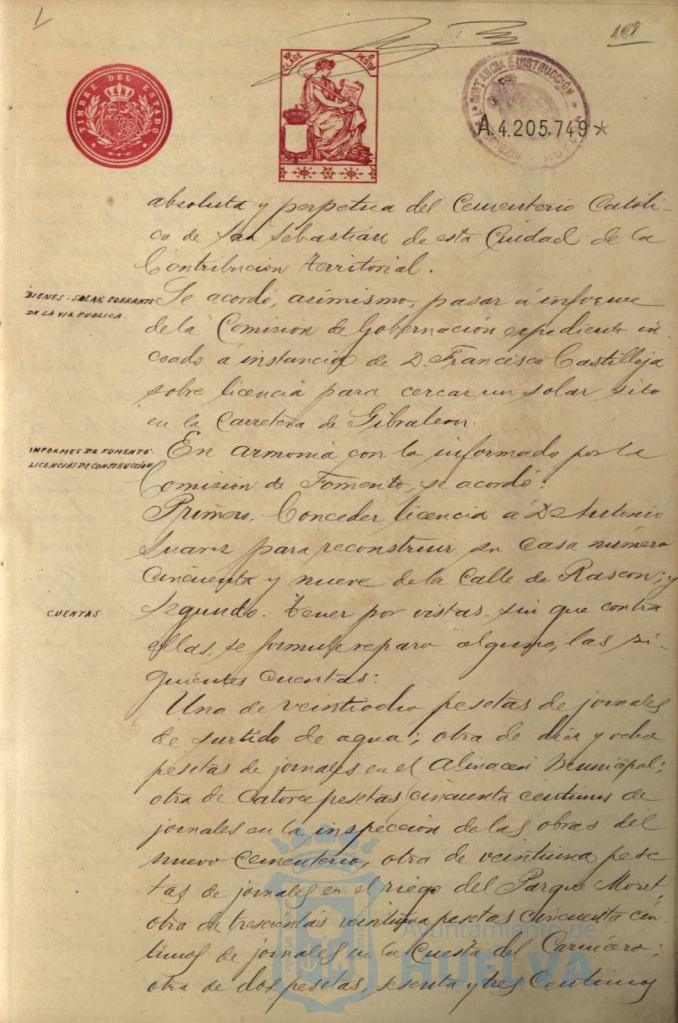 189
TIMBRE DEL ESTADO
CLASE
A4.205.749*
absoluta y perpetua del Cementerio Católi-
co de San Sebastián de esta Ciudad de la
Contribución territorial.
BIENES: SOLAR SOBRANTE
DE LA VIA PUBLICA
Se acordó, asimismo, pasar á informe
de la Comisión de Gobernación expediente in
coado á instancia de D. Francisco Castilleja
sobre licencia para cercar un solar sito
en la Carretera de Gibraleon.
INFORMES DE FOMENTO:
LICENCIAS DE CONSTRUCCIÓN
En armonia con lo informado por la
Comisión de Fomento, se acordó:
Primero. Conceder licencia á D. Antonio
Suarez para reconstruir su casa número
cincuenta y nueve de la calle de Rascon; y
CUENTAS
segundo. Tener por vistas, sin que contra
ellas, se formule reparo alguno, las si-
guientes cuentas:
Una de veintiocho pesetas de jornales
de surtido de agua; otra de diez y ocho
pesetas de jornales en el Almacen Municipal;
otra de catorce pesetas cincuenta centimos de
jornales en la inspección de las obras del
nuevo cementerio, otra de veintiuna pese
tas de jornales en el riego del Parque Moret,
otra de trescientas veintiuna pesetas cincuenta cén-
timos de jornales en la Cuesta del Carnicero;
otra de dos pesetas, sesenta y tres centimos
Ayuntamiento de
HUELVA